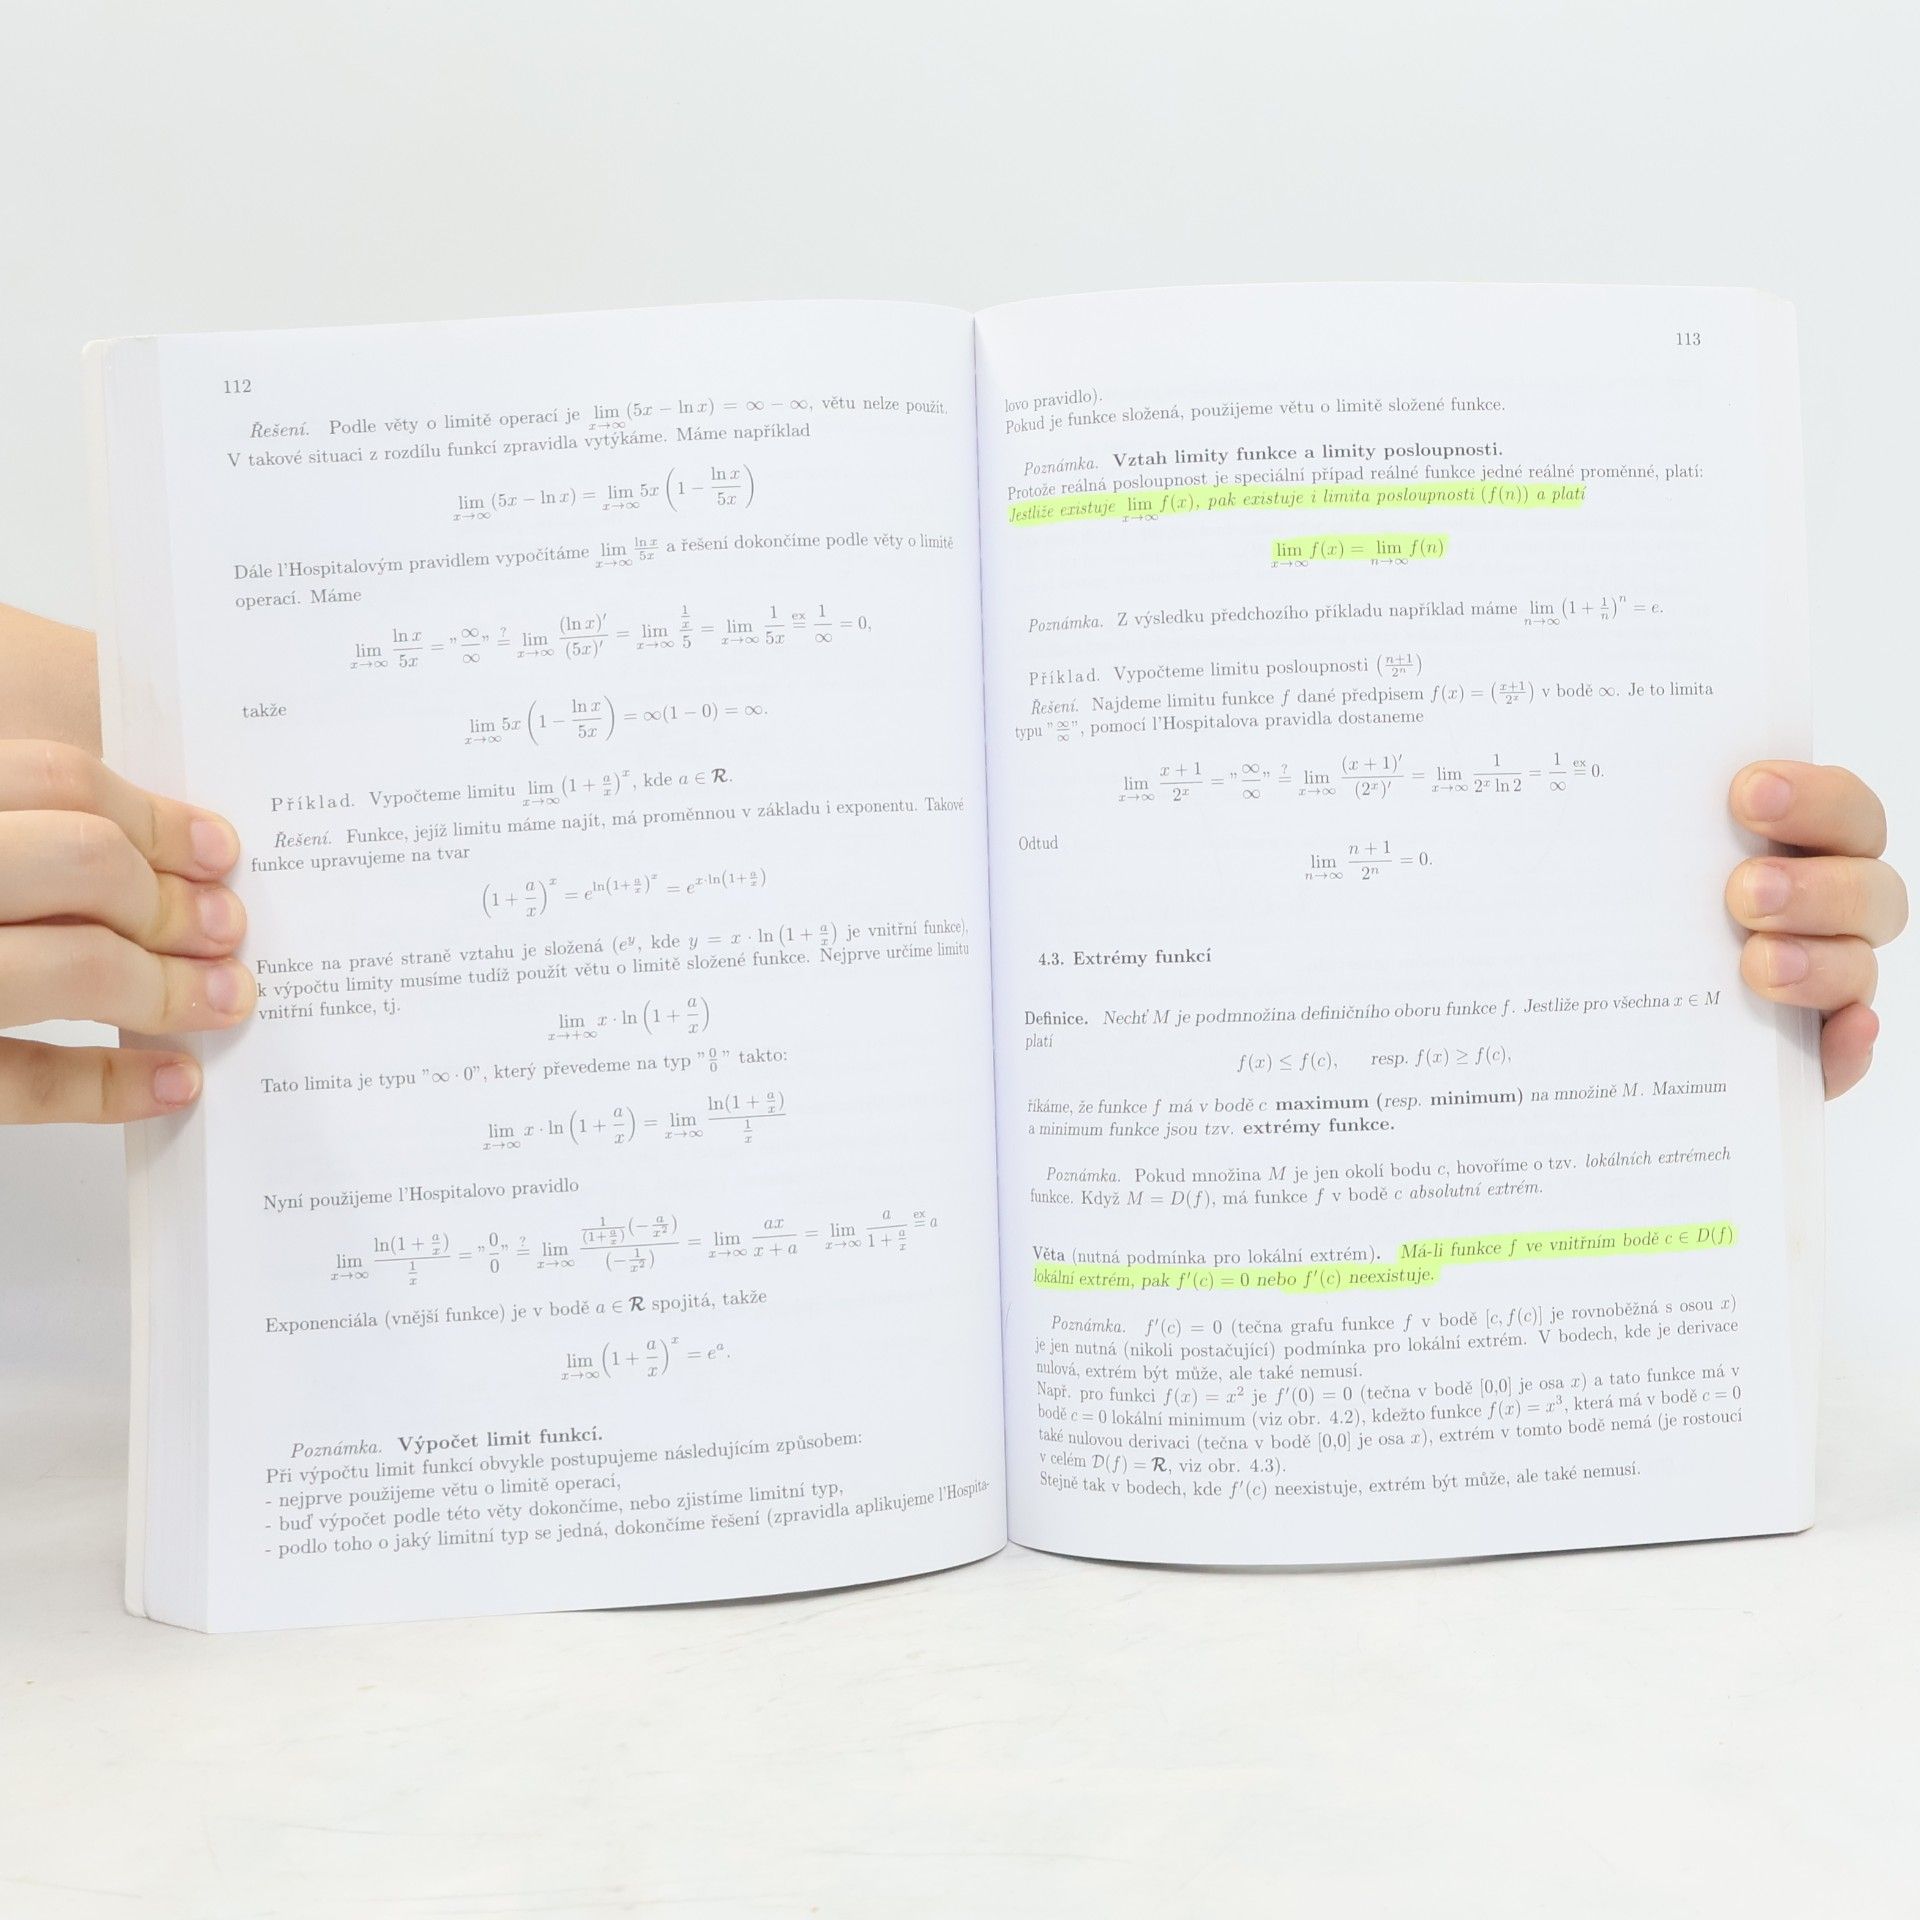 112
Řešení. Podle věty o limitě operací je lim x→∞ (5x − ln x) = ∞ − ∞, větu nelze použít.
V takové situaci z rozdílu funkcí zpravidla vytýkáme. Máme například
lim x→∞ (5x − ln x) = lim x→∞ 5x (1 − ln x / 5x)
Dále l'Hospitalovým pravidlem vypočítáme lim x→∞ ln x / 5x a řešení dokončíme podle věty o limitě
operací. Máme
lim x→∞ ln x / 5x = "∞/∞" ?= lim x→∞ (ln x)′ / (5x)′ = lim x→∞ (1/x) / 5 = lim x→∞ 1 / 5x ex= 1/∞ = 0,
takže
lim x→∞ 5x (1 − ln x / 5x) = ∞(1 − 0) = ∞.
Příklad. Vypočteme limitu lim x→∞ (1 + a/x)^x, kde a ∈ R.
Řešení. Funkce, jejíž limitu máme najít, má proměnnou v základu i exponentu. Takové
funkce upravujeme na tvar
(1 + a/x)^x = e^ln(1+a/x)^x = e^x·ln(1+a/x)
Funkce na pravé straně vztahu je složená (e^y, kde y = x · ln (1 + a/x) je vnitřní funkce),
k výpočtu limity musíme tudíž použít větu o limitě složené funkce. Nejprve určíme limitu
vnitřní funkce, tj.
lim x→+∞ x · ln (1 + a/x)
Tato limita je typu "∞ · 0", který převedeme na typ "0/0" takto:
lim x→∞ x · ln (1 + a/x) = lim x→∞ ln(1 + a/x) / (1/x)
Nyní použijeme l'Hospitalovo pravidlo
lim x→∞ ln(1 + a/x) / (1/x) = "0/0" ?= lim x→∞ 1/(1+a/x) (−a/x²) / (−1/x²) = lim x→∞ ax / (x + a) = lim x→∞ a / (1 + a/x) ex= a
Exponenciála (vnější funkce) je v bodě a ∈ R spojitá, takže
lim x→∞ (1 + a/x)^x = e^a.
Poznámka. Výpočet limit funkcí.
Při výpočtu limit funkcí obvykle postupujeme následujícím způsobem:
- nejprve použijeme větu o limitě operací,
- buď výpočet podle této věty dokončíme, nebo zjistíme limitní typ,
- podlo toho o jaký limitní typ se jedná, dokončíme řešení (zpravidla aplikujeme l'Hospita-
113
lovo pravidlo).
Pokud je funkce složená, použijeme větu o limitě složené funkce.
Poznámka. Vztah limity funkce a limity posloupnosti.
Protože reálná posloupnost je speciální případ reálné funkce jedné reálné proměnné, platí:
Jestliže existuje lim x→∞ f(x), pak existuje i limita posloupnosti (f(n)) a platí
lim x→∞ f(x) = lim n→∞ f(n)
Poznámka. Z výsledku předchozího příkladu například máme lim n→∞ (1 + 1/n)^n = e.
Příklad. Vypočteme limitu posloupnosti (n+1 / 2^n)
Řešení. Najdeme limitu funkce f dané předpisem f(x) = (x+1 / 2^x) v bodě ∞. Je to limita
typu "∞/∞", pomocí l'Hospitalova pravidla dostaneme
lim x→∞ (x + 1) / 2^x = "∞/∞" ?= lim x→∞ (x + 1)′ / (2^x)′ = lim x→∞ 1 / (2^x ln 2) = 1/∞ ex= 0.
Odtud
lim n→∞ (n + 1) / 2^n = 0.
4.3. Extrémy funkcí
Definice. Nechť M je podmnožina definičního oboru funkce f. Jestliže pro všechna x ∈ M
platí
f(x) ≤ f(c), resp. f(x) ≥ f(c),
říkáme, že funkce f má v bodě c maximum (resp. minimum) na množině M. Maximum
a minimum funkce jsou tzv. extrémy funkce.
Poznámka. Pokud množina M je jen okolí bodu c, hovoříme o tzv. lokálních extrémech
funkce. Když M = D(f), má funkce f v bodě c absolutní extrém.
Věta (nutná podmínka pro lokální extrém). Má-li funkce f ve vnitřním bodě c ∈ D(f)
lokální extrém, pak f′(c) = 0 nebo f′(c) neexistuje.
Poznámka. f′(c) = 0 (tečna grafu funkce f v bodě [c, f(c)] je rovnoběžná s osou x)
je jen nutná (nikoli postačující) podmínka pro lokální extrém. V bodech, kde je derivace
nulová, extrém být může, ale také nemusí.
Např. pro funkci f(x) = x² je f′(0) = 0 (tečna v bodě [0,0] je osa x) a tato funkce má v
bodě c = 0 lokální minimum (viz obr. 4.2), kdežto funkce f(x) = x³, která má v bodě c = 0
také nulovou derivaci (tečna v bodě [0,0] je osa x), extrém v tomto bodě nemá (je rostoucí
v celém D(f) = R, viz obr. 4.3).
Stejně tak v bodech, kde f′(c) neexistuje, extrém být může, ale také nemusí.